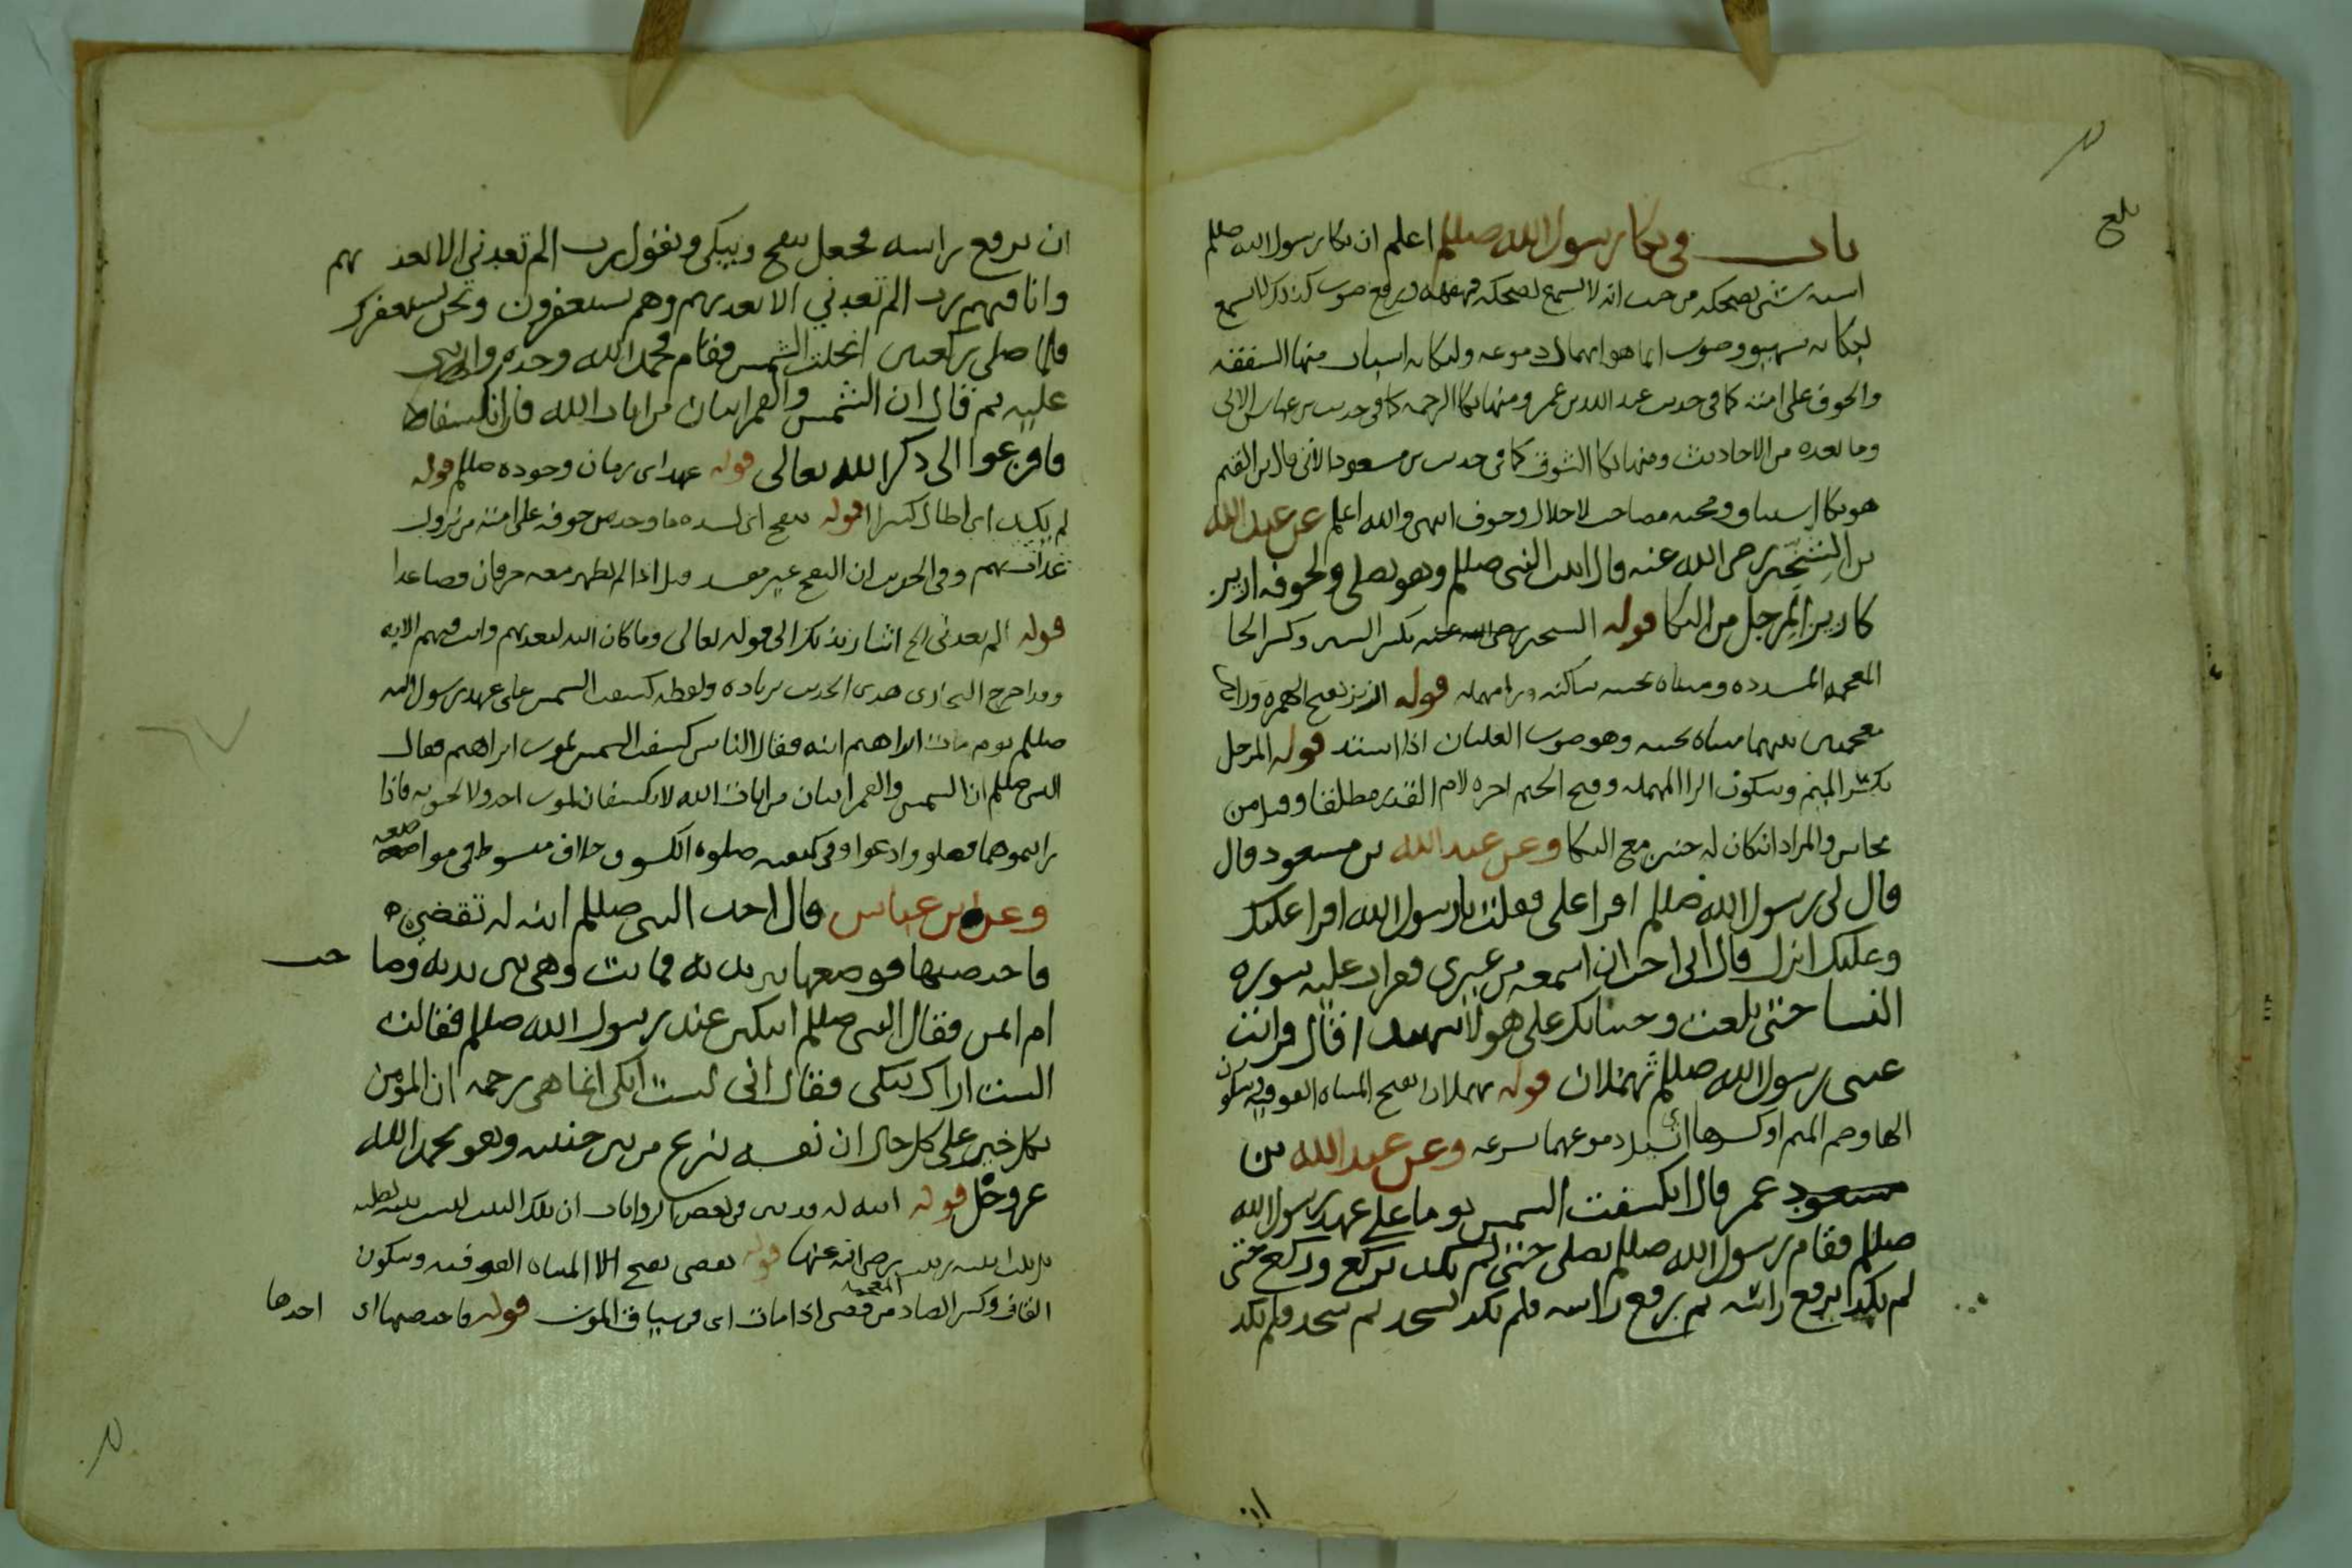 بلغ
باب في بكا رسول الله صللم اعلم ان بكا رسول الله صللم
اسبه شي بضحكه من حيث انه لا يسمع لضحكه قهقهه ويرفع صوت كذلك لا يسمع
لبكايه شهيق وصوت انما هو انهمال دموعه ولبكايه اسباب منها الشفقه
والخوف على امته كما في حديث عبد الله بن عمر ومنها بكا الرحمه كما في حديث بن عباس الاتي
وما بعده من الاحاديث ومنها بكا الشوق كما في حديث بن مسعود الاتي قال بن القيم
هو بكا اشتياق ومحبه مصاحب لاجلال وخوف انتهى والله اعلم عن عبد الله
بن الشخير رضي الله عنه قال اتيت النبي صللم وهو يصلي ولجوفه ازيز
كازيز المرجل من البكا قوله الشخير رضي الله عنه بكسر الشين وكسر الخا
المعجمه المشدده ومثناه تحتيه ساكنه ورا مهمله قوله ازيز بفتح الهمزه وزاي
معجمتين بينهما مثناه تحتيه وهو صوت الغليان اذا اشتد قوله المرجل
بكسر الميم وسكون الرا المهمله وفتح الجيم اخره لام القدر مطلقا وقيل من
نحاس والمراد انه كان له حنين مع البكا وعن عبد الله بن مسعود قال
قال لي رسول الله صللم اقرا علي فقلت يا رسول الله اقرا عليك
وعليك انزل قال اني احب ان اسمعه من غيري فقرات عليه سوره
النسا حتى بلغت وجينا بك على هولا شهيدا قال فرايت
عيني رسول الله صللم تهملان قوله تهملان بفتح المثناه الفوقيه وسكون
الها وضم الميم او كسرها اي تسيل دموعهما بسرعه وعن عبد الله بن
مسعود عمر قال انكسفت الشمس يوما على عهد رسول الله
صللم فقام رسول الله صللم يصلي حتى لم يكد يركع وركع حتى
لم يكد يرفع راسه ثم رفع راسه فلم يكد يسجد ثم سجد فلم يكد
ان يرفع راسه فجعل ينفخ ويبكي ويقول رب الم تعدني الا تعذبهم
وانا فيهم رب الم تعدني الا تعذبهم وهم يستغفرون ونحن نستغفرك
فلما صلى ركعتين انجلت الشمس فقام فحمد الله وحده واثنى
عليه ثم قال ان الشمس والقمر ايتان من ايات الله فاذا انكسفا
فافزعوا الى ذكر الله تعالى قوله عهد اي زمان وجوده صللم قوله
لم يكد اي اطال كثيرا قوله ينفخ اي لشده ما وجد من خوفه على امته من نزول
عذاب بهم وفي الحديث ان النفخ غير مفسد قيل اذا لم يظهر معه حرفان فصاعدا
قوله الم تعدني الخ اشار بذلك الى قوله تعالى وما كان الله ليعذبهم وانت فيهم الايه
وقد اخرج البخاري هذا الحديث بزياده ولفظه كسفت الشمس على عهد رسول الله
صللم يوم مات ابراهيم ابنه فقال الناس كسفت الشمس لموت ابراهيم فقال
النبي صللم ان الشمس والقمر ايتان من ايات الله لا ينكسفان لموت احد ولا لحيوته فاذا
رايتموهما فصلو وادعوا وفي كيفيه صلوه الكسوف خلاف مبسوط في مواضعه
وعن بن عباس قال اخذ النبي صللم ابنه له تقضي
فاحتضنها فوضعها بين يديه فماتت وهي بين يديه وصاحت
ام ايمن فقال النبي صللم اتبكين عند رسول الله صللم فقالت
الست اراك تبكي فقال اني لست ابكي انما هي رحمه ان المومن
بكل خير على كل حال ان نفسه تنزع من بين جنبيه وهو يحمد الله
عز وجل قوله ابنه له وفي بعض الروايات ان تلك البنت ليست بنته لصلبه
بل بنت ابنته زينب رضي الله عنها قوله تقضي بفتح المثناه الفوقيه وسكون
القاف وكسر الضاد المعجمه من قضى اذا مات اي في سياق الموت قوله فاحتضنها اي اخذها